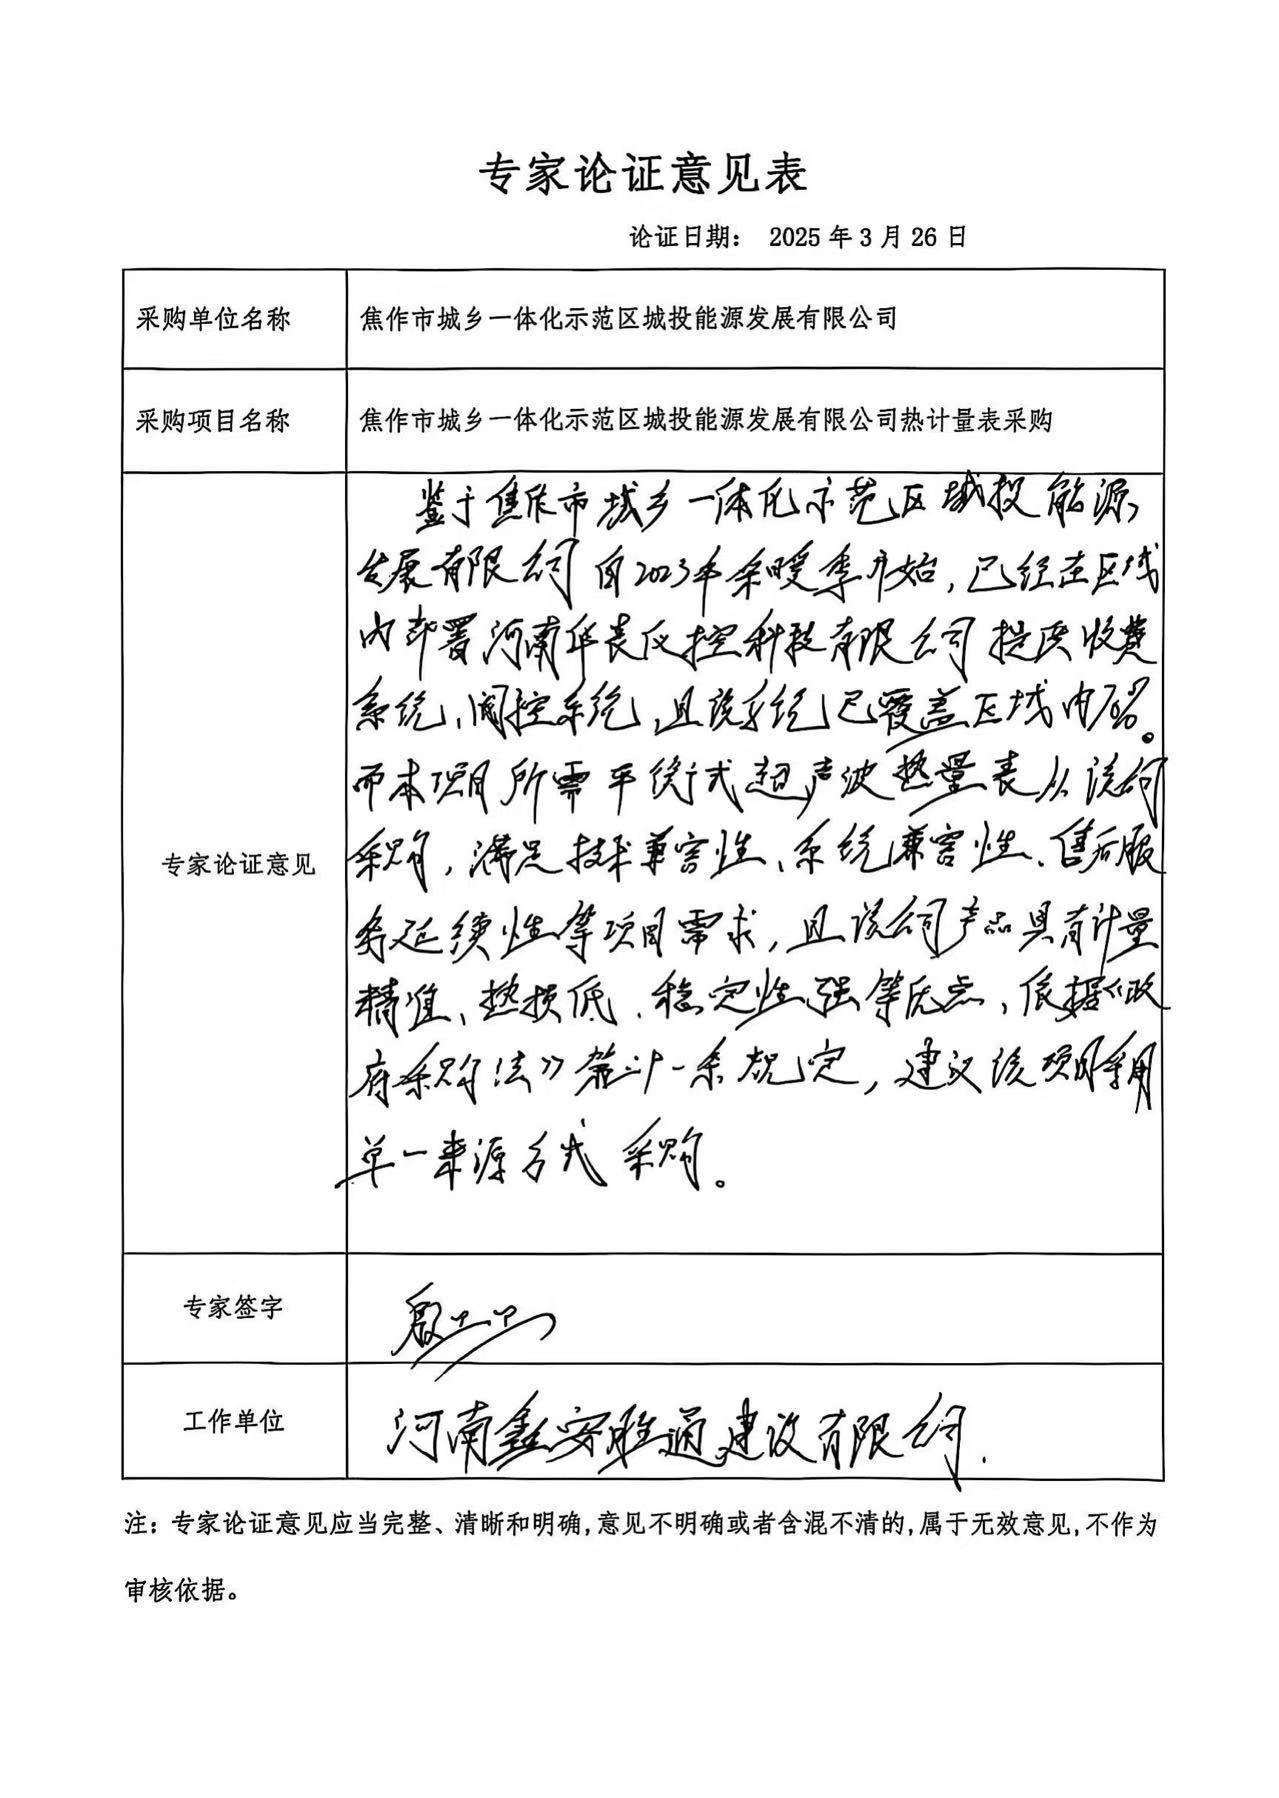 专家论证意见表
论证日期： 2025 年 3 月 26 日
采购单位名称
焦作市城乡一体化示范区城投能源发展有限公司
采购项目名称
焦作市城乡一体化示范区城投能源发展有限公司热计量表采购
专家论证意见
鉴于焦作市城乡一体化示范区城投能源
发展有限公司自2023年采暖季开始,已经在区域
内部署河南华表仪控科技有限公司提供收费
系统、阀控系统,且该系统已覆盖区域内70%。
而本项目所需平衡式超声波热量表从该公司
采购,满足技术兼容性、系统兼容性、售后服
务延续性等项目需求,且该公司产品具有计量
精准、热损低、稳定性强等优点,依据《政
府采购法》第三十一条规定,建议该项目采用
单一来源方式采购。
专家签字
工作单位
河南鑫安胜通建设有限公司.
注：专家论证意见应当完整、清晰和明确,意见不明确或者含混不清的,属于无效意见,不作为
审核依据。